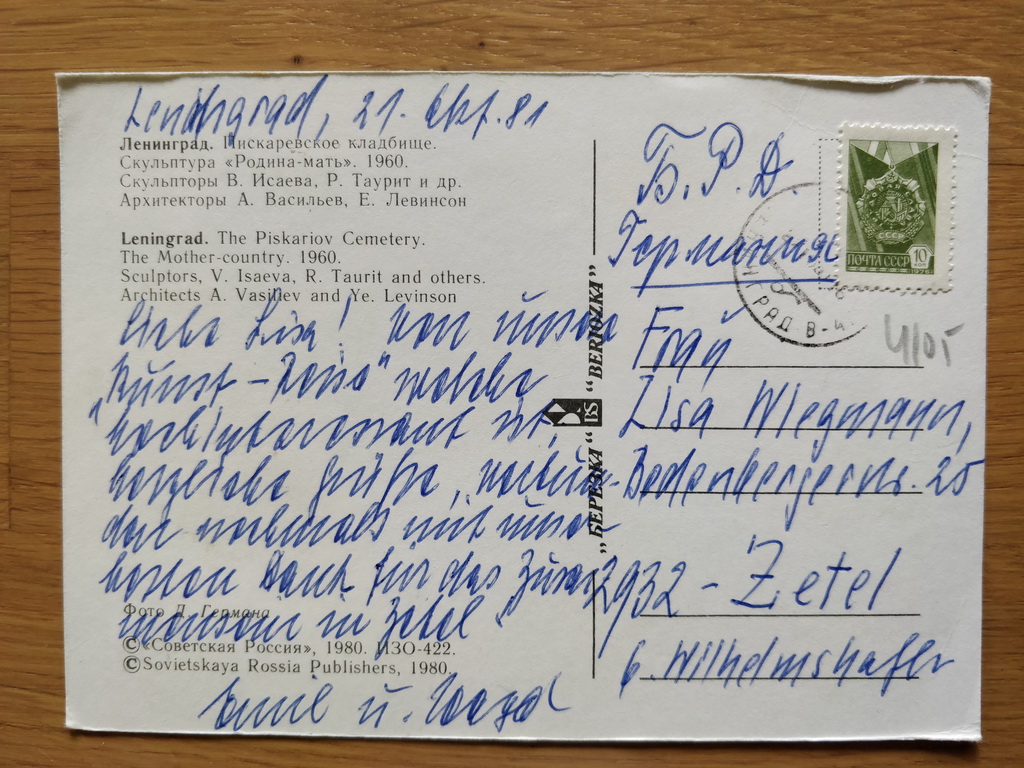 Leningrad, 21. Okt. 81
Ленинград. Пискаревское кладбище.
Скульптура «Родина-мать». 1960.
Скульпторы В. Исаева, Р. Таурит и др.
Архитекторы А. Васильев, Е. Левинсон
Leningrad. The Piskariov Cemetery.
The Mother-country. 1960.
Sculptors, V. Isaeva, R. Taurit and others.
Architects A. Vasiliev and Ye. Levinson
Liebe Lisa! Von unserer
"Kunst-Reise" welche
hochinteressant ist,
herzliche Grüße, verbun-
den nochmals mit unserem
besten Dank für das Zusam-
mensein in Zetel
Фото Д. Германа
©«Советская Россия», 1980. ИЗО-422.
©Sovietskaya Rossia Publishers, 1980.
u.
"БЕРЕЗКА" BS "BERIOZKA"
Б.Р.Д
Германия
ПОЧТА СССР 10
1976
СССР
Frau
Lisa Wiegmann,
25
2932 - Zetel
b. Wilhelmshafen